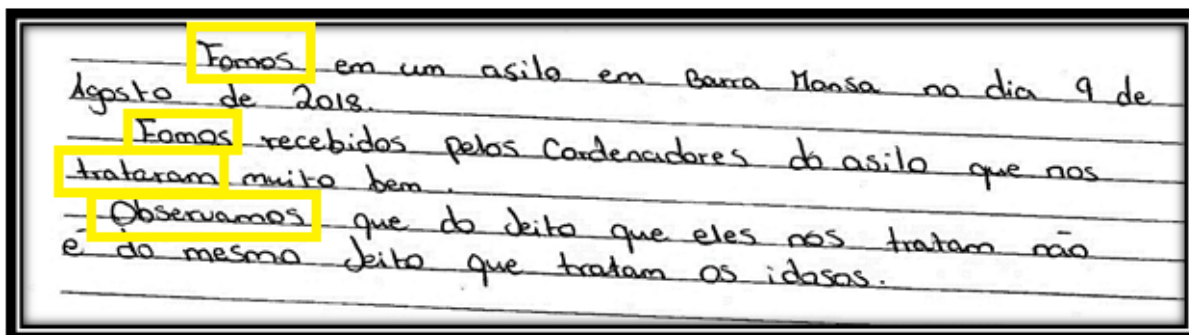 Fomos em um asilo em Barra Mansa no dia 9 de
Agosto de 2018.
Fomos recebidos pelos Cordenadores do asilo que nos
trataram muito bem.
Observamos que do Jeito que eles nos tratam não
é do mesmo Jeito que tratam os idosos.